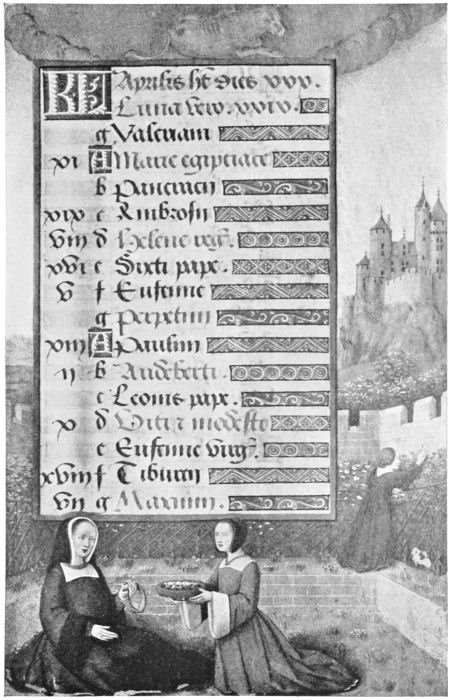 KL Aprilis ht dies xxx.
Luna vero. xxix.
g Valeriani
xi A Marie egiptiace
b pancracii
xix c Ambrosii
viii d Helene reg.
xvi e Sixti pape.
v f Eufemie
g perpetui
xiii A paulini
ii b Audeberti.
c Leonis pape.
x d Viti z modeste
e Eufemie virg.
xviii f Tiburcii
vii g Maximi.